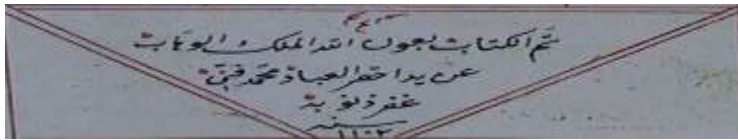 تم الكتاب بعون الله الملك الوهاب
عن يد احقر العباد محمد
غفر ذنوبه
سنة
١١٠٢